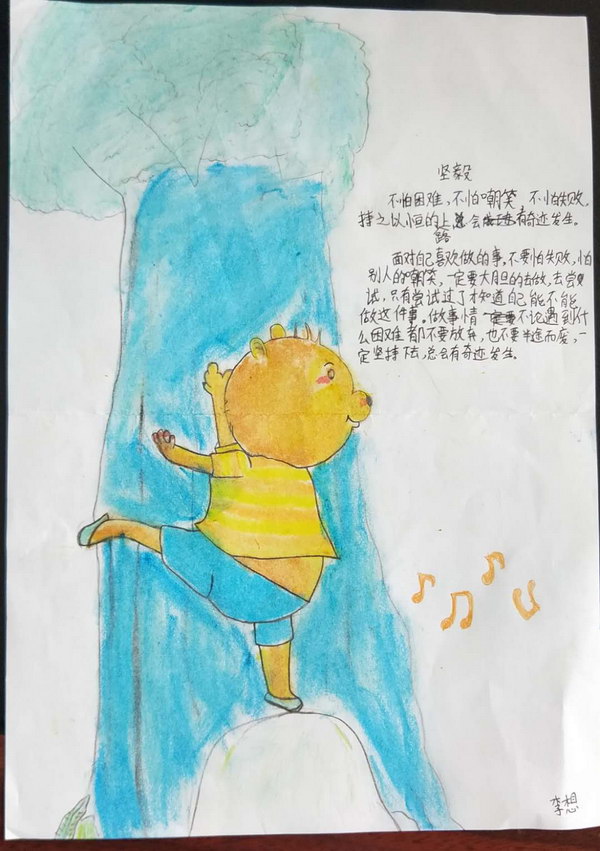 坚毅
不怕困难,不怕嘲笑 不怕失败,
持之以恒的上路,总会有奇迹发生。
面对自己喜欢做的事,不要怕失败,怕
别人的嘲笑,一定要大胆的去做,去尝
试,只有尝试过了才知道自己能不能
做这件事。做事情 不论遇到什
么困难都不要放弃,也不要半途而废,一
定坚持下去,总会有奇迹发生。
李想